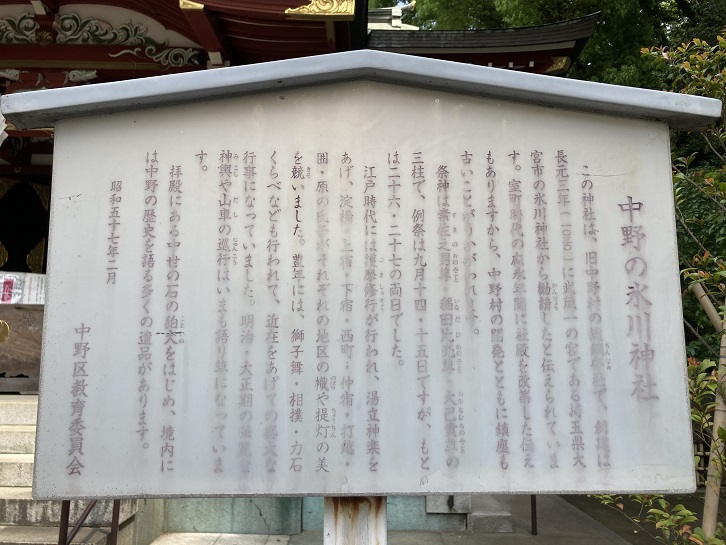 中野の氷川神社
この神社は、旧中野村の総鎮守社で、創建は
長元三年(一〇三〇)に武蔵一の宮である埼玉県大
宮市の氷川神社から勧請したと伝えられていま
す。室町時代の応永年間に社殿を改築した伝え
もありますから、中野村の開発とともに鎮座も
古いことがうかがわれます。
祭神は素佐之男尊・稲田比売尊・大己貴尊の
三柱で、例祭は九月十四・十五日ですが、もと
は二十六・二十七の両日でした。
江戸時代には護摩修行が行われ、湯立神楽を
あげ、淀橋・上宿・下宿・西町・仲宿・打越・
囲・原の氏子がそれぞれの地区の幟や提灯の美
を競いました。豊年には、獅子舞・相撲・力石
くらべなども行われて、近在をあげての盛大な
行事になっていました。明治・大正期の
神輿や山車の巡行はいまも語り草になっていま
す。
拝殿にある中世の石の狛犬をはじめ、境内に
は中野の歴史を語る多くの遺品があります。
昭和五十七年二月
中野区教育委員会